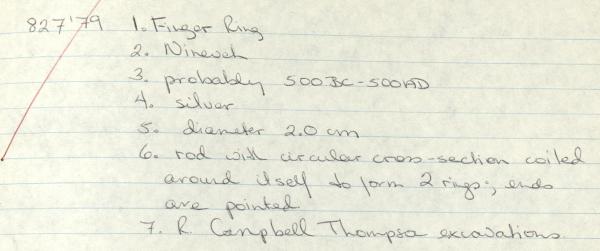 827'79 1. Finger Ring
2. Nineveh
3. probably 500BC-500AD
4. silver
5. diameter 2.0 cm
6. rod with circular cross-section coiled
around itself to form 2 rings; ends
are pointed
7. R. Campbell Thompson excavations.